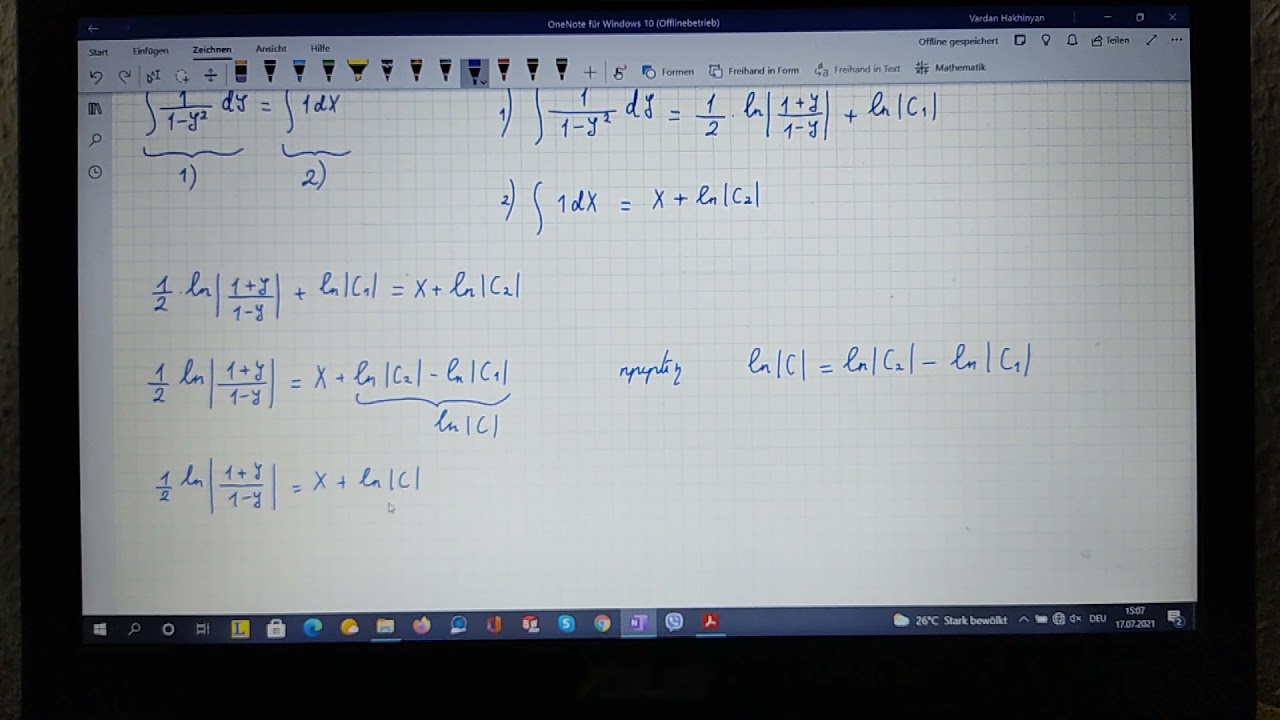 OneNote für Windows 10 (Offlinebetrieb)
Vardan Hakhinyan
Start Einfügen Zeichnen Ansicht Hilfe
Offline gespeichert Teilen
Formen Freihand in Form Freihand in Text Mathematik
∫ 1/(1-y²) dy = ∫ 1dx
1) 2)
1) ∫ 1/(1-y²) dy = 1/2 · ln|(1+y)/(1-y)| + ln|C₁|
2) ∫ 1dx = x + ln|C₂|
1/2 · ln|(1+y)/(1-y)| + ln|C₁| = x + ln|C₂|
1/2 ln|(1+y)/(1-y)| = x + ln|C₂| - ln|C₁|
ln|C|
որտեղ ln|C| = ln|C₂| - ln|C₁|
1/2 ln|(1+y)/(1-y)| = x + ln|C|
26°C Stark bewölkt DEU 15:07
17.07.2021
ASUS